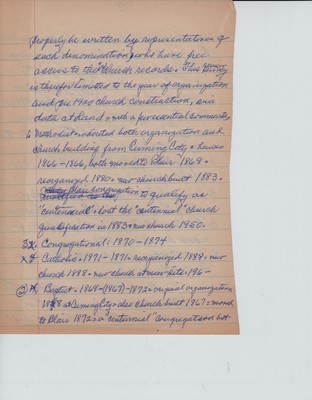 properly be written by representatives of
each denomination, who have free
access to their church records. This survey
is therefor limited to the year of organization
and/or 1900 church construction, and
data at hand, with a few essential comments,
Methodist - inherited both organization and
church building from Cuming City, hence
1866-1866, both moved to Blair 1869 -
reorganized 1880 - new church built 1883 -
Blair congregation to qualify as
"centennial", but the "centennial" church
qualification in 1883 - new church 1950.
3x. Congregational: 1870-1874
x4 Catholic - 1871-1871 - reorganized 1888 - new
church 1888 - new church at new site - 196-
Baptist - 1868-(1867)-1873 - original organization
1868 at Cuming City - also church built 1867 - moved
to Blair 1872 - a "centennial" congregation but